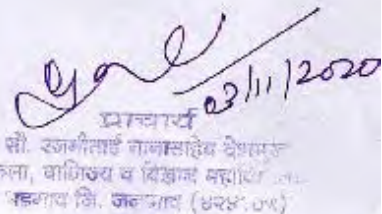 03/11/2020
प्राचार्य
सौ. रजनीताई नानासाहेब देशमुख
कला, वाणिज्य व विज्ञान
भडगाव जि. जळगाव (४२४